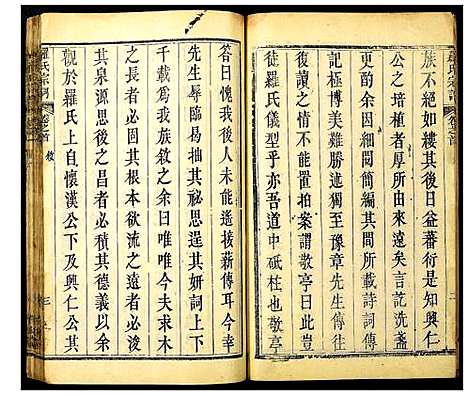 羅氏宗譜
卷之首
族不絕如縷其後日益蕃衍是知興仁
公之培植者厚所由來遠矣言訖洗盞
更酌余因細閱簡編其間所載詩詞傳
記極博美難勝述獨至豫章先生傳往
復之情不能置拍案謂敬亭曰此豈獨
徒羅氏儀型乎亦吾道中砥柱也敬亭
答曰愧我後人未能遙接薪傳耳今幸
先生辱臨曷抽其祕思逞其妍詞上下
千載爲我族敘之余曰唯唯今夫求木
之長者必固其根本欲流之遠者必浚
其泉源己之昌者必積其德義以余
觀於羅氏上自懷漢公下及興仁公其
羅氏宗譜
卷之首
敘
三